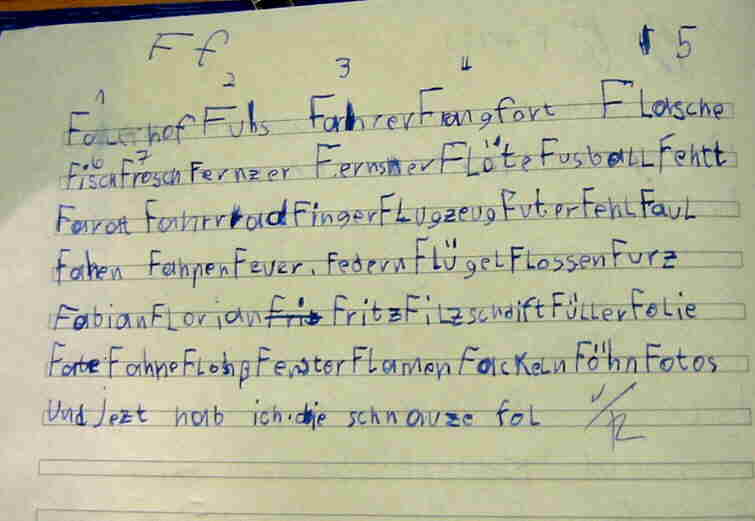 F f 5
1 2 3 4
hof Fuhs Fahrer Frangfort Flasche
6 7
Fisch Frosch Fernzer Fernsner Flöte Fusball Fehlt
Farat Fahrrrad Finger Flugzeug Futer Fehl Faul
Fahen Fahnen Feuer. Federn Flügel Flossen Furz
Fabian Florian Fritz Filzschdift Füller Folie
Farbe Fahne Fenster Flamen Fackeln Föhn Fotos
Und jezt hab ich die schnauze fol